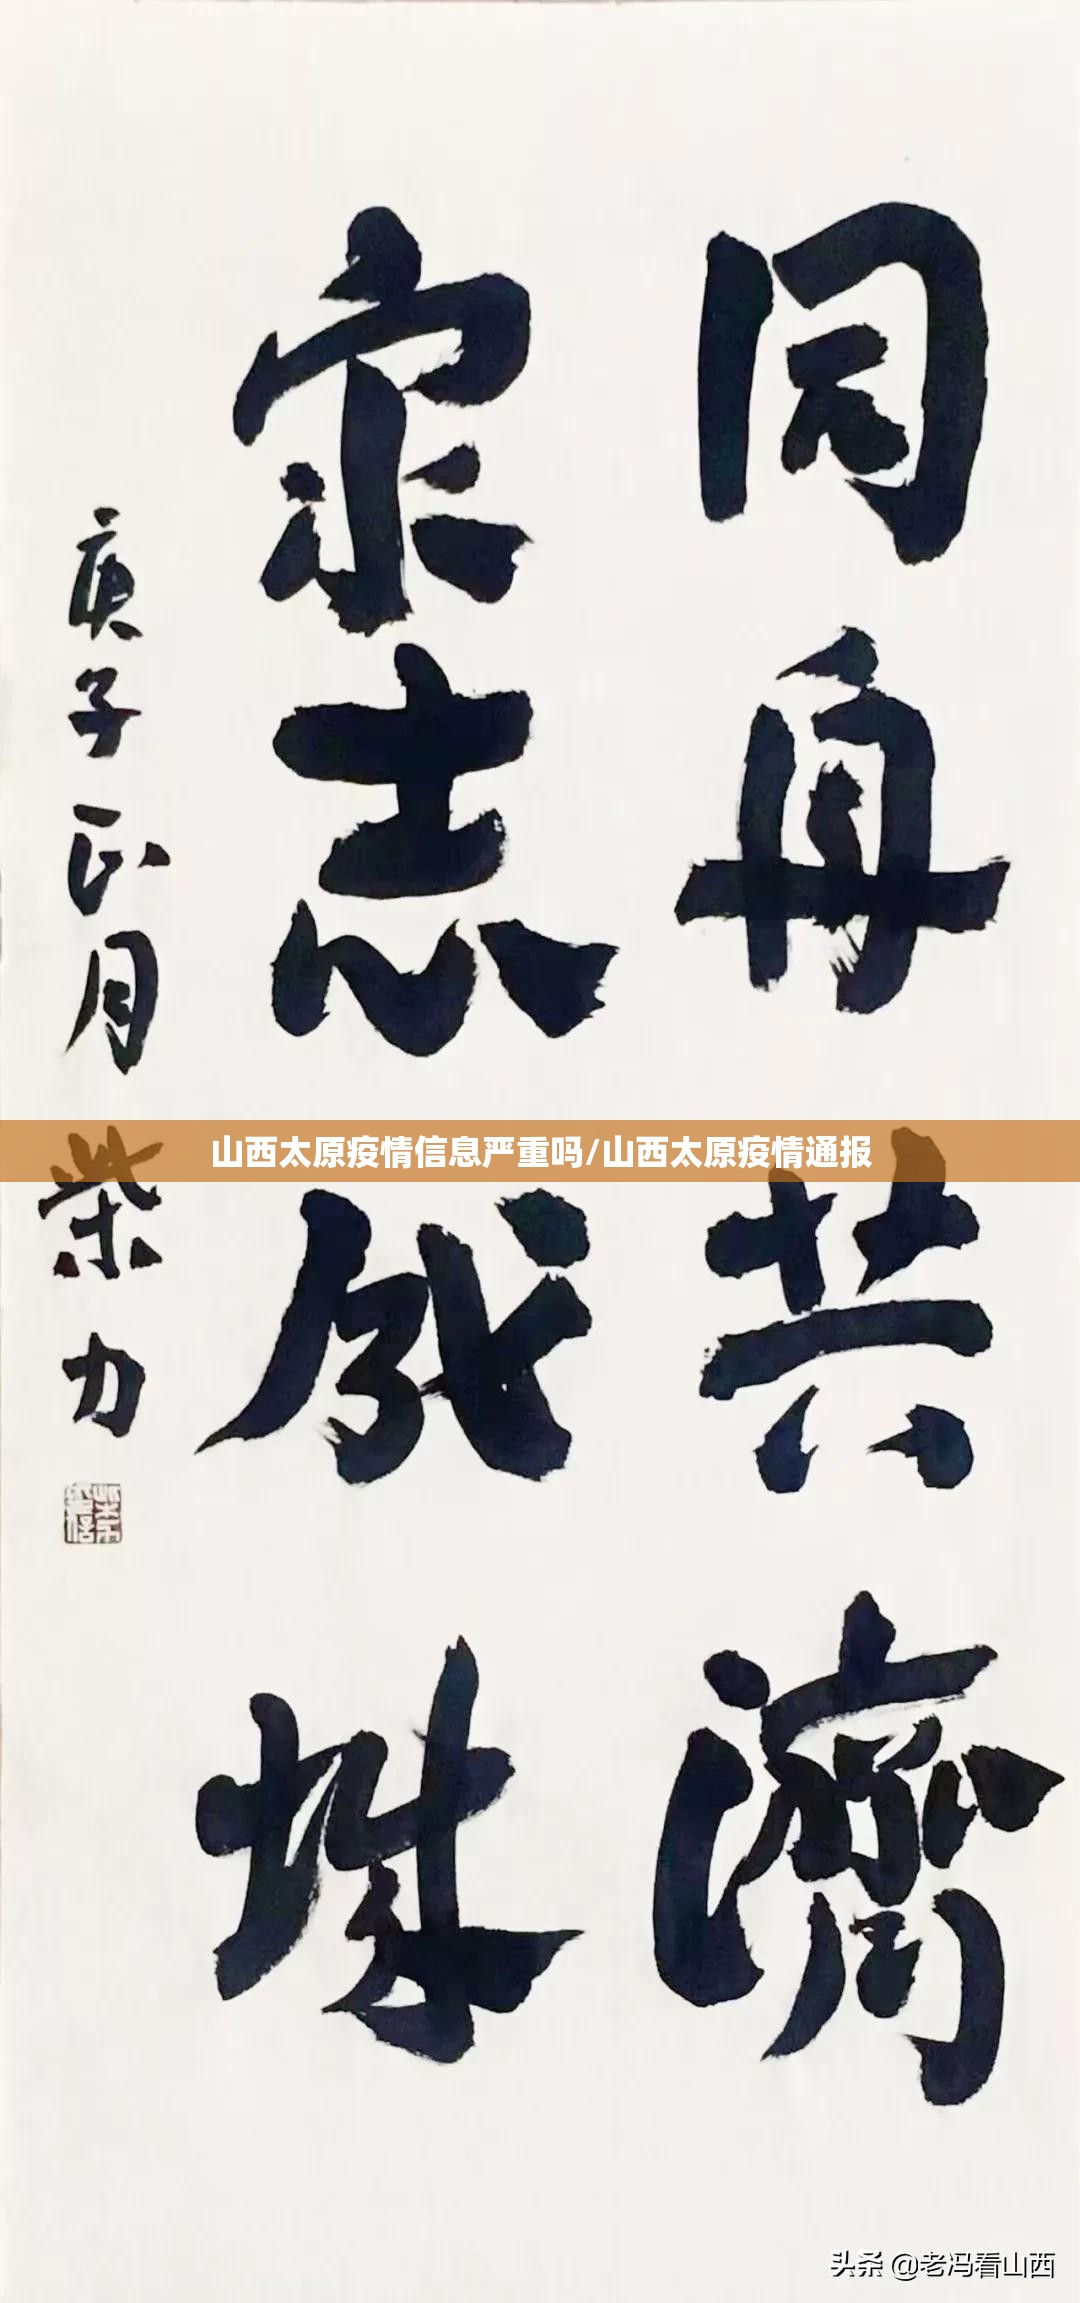 同舟共濟
衆志成城
庚子正月柴力
山西太原疫情信息严重吗/山西太原疫情通报
头条 @老冯看山西